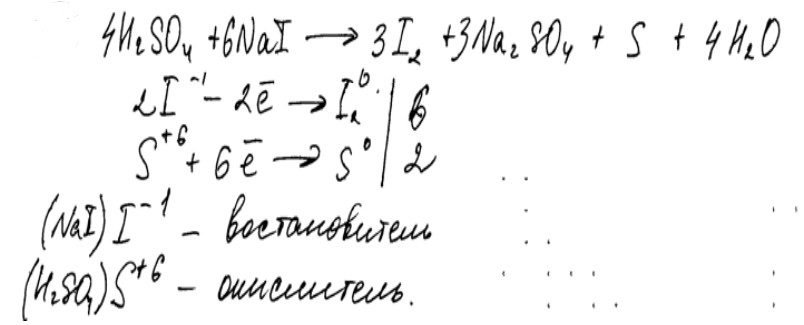 4H₂SO₄ + 6NaI → 3I₂ + 3Na₂SO₄ + S + 4H₂O
2I⁻¹ - 2ē → I₂⁰ | 6
S⁺⁶ + 6ē → S⁰ | 2
(NaI) I⁻¹ – востановитель
(H₂SO₄) S⁺⁶ – окислитель.